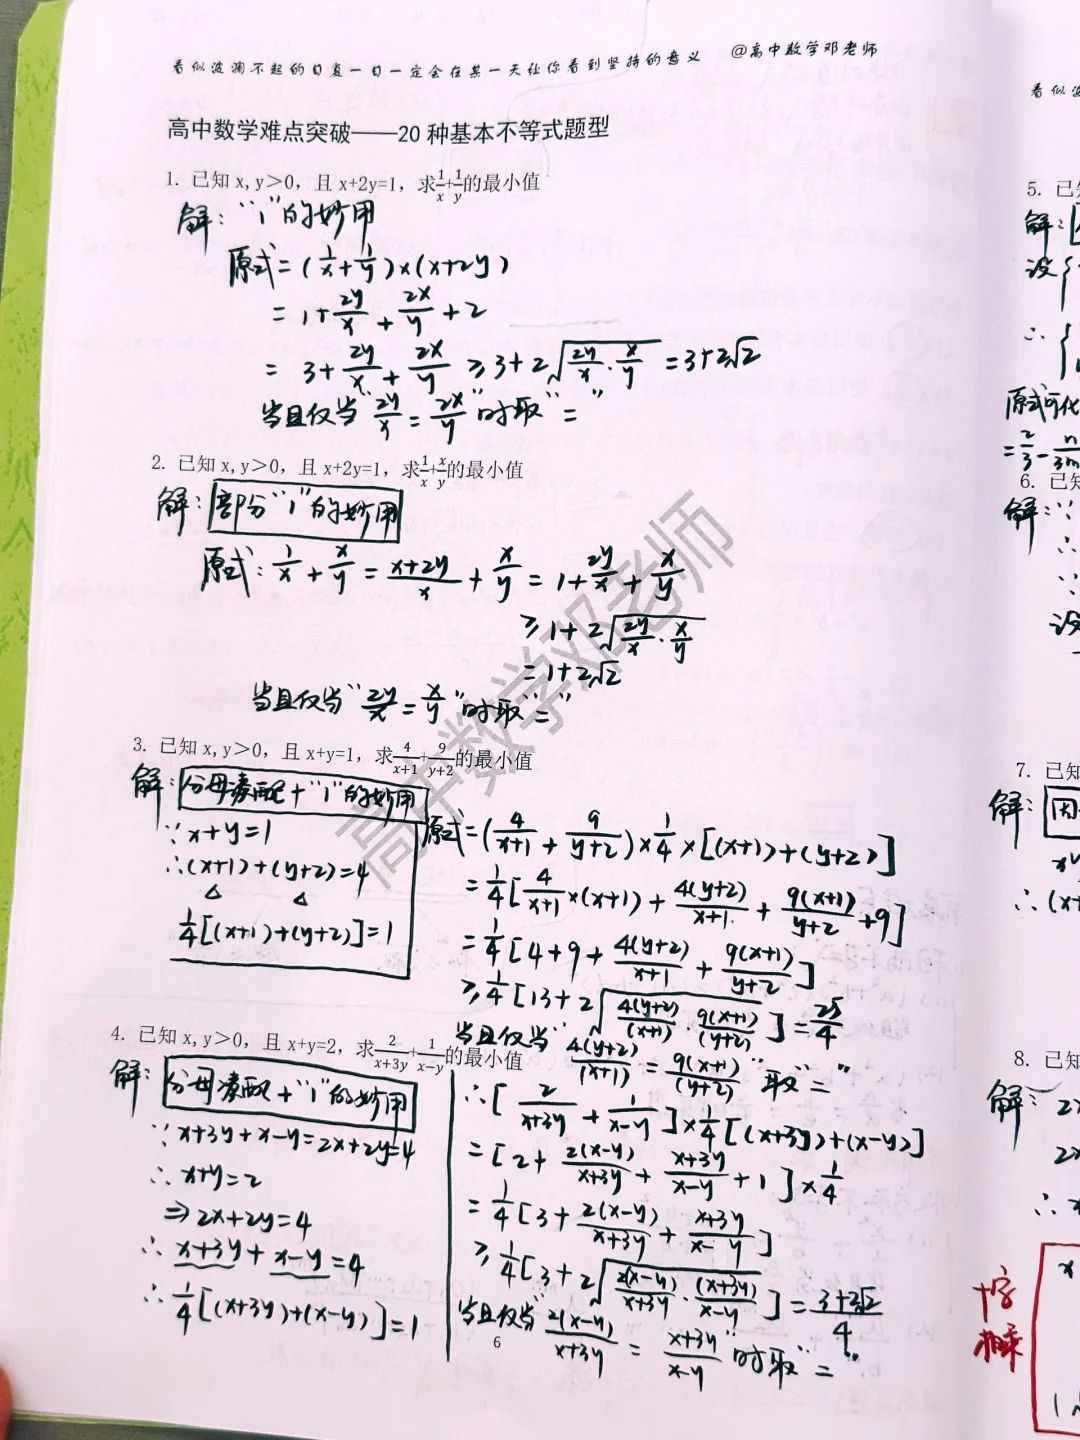 看似波澜不起的日复一日一定会在某一天让你看到坚持的意义 @高中数学邓老师
高中数学难点突破——20 种基本不等式题型
1. 已知 x,y＞0，且 x+2y=1，求1/x+1/y的最小值
解：“1”的妙用
原式=(1/x+1/y)×(x+2y)
=1+2y/x+2x/y+2
=3+2y/x+2x/y≥3+2√(2y/x·x/y)=3+2√2
当且仅当“2y/x=2x/y”时取“=”
2. 已知 x,y＞0，且 x+2y=1，求1/x+x/y的最小值
解：部分“1”的妙用
原式：1/x+x/y=(x+2y)/x+x/y=1+2y/x+x/y
≥1+2√(2y/x·x/y)
=1+2√2
当且仅当“2y/x=x/y”时取“=”
高中数学邓老师
3. 已知 x,y＞0，且 x+y=1，求4/(x+1)+9/(y+2)的最小值
解：分母凑配+“1”的妙用
∵x+y=1
∴(x+1)+(y+2)=4
1/4[(x+1)+(y+2)]=1
原式=(4/(x+1)+9/(y+2))×1/4×[(x+1)+(y+2)]
=1/4[4/(x+1)×(x+1)+4(y+2)/(x+1)+9(x+1)/(y+2)+9]
=1/4[4+9+4(y+2)/(x+1)+9(x+1)/(y+2)]
≥1/4[13+2√(4(y+2)/(x+1)·9(x+1)/(y+2))]=25/4
当且仅当“4(y+2)/(x+1)=9(x+1)/(y+2)”取“=”
4. 已知 x,y＞0，且 x+y=2，求2/(x+3y)+1/(x−y)的最小值
解：分母凑配+“1”的妙用
∵x+3y+x-y=2x+2y=4
∴x+y=2
⇒2x+2y=4
∴x+3y+x-y=4
∴1/4[(x+3y)+(x-y)]=1
∴[2/(x+3y)+1/(x-y)]×1/4[(x+3y)+(x-y)]
=[2+2(x-y)/(x+3y)+(x+3y)/(x-y)+1]×1/4
=1/4[3+2(x-y)/(x+3y)+(x+3y)/(x-y)]
≥1/4[3+2√(2(x-y)/(x+3y)·(x+3y)/(x-y))]=(3+2√2)/4
当且仅当“2(x-y)/(x+3y)=(x+3y)/(x-y)”时取“=”
6
看似波
5. 已知
解：
设
∴
原式可化
=2/3-
6. 已知
解：∵
∴
∵
设
7. 已知
解：因
∴(x+
8. 已知
解：2x
2x
∴x
十字
相乘